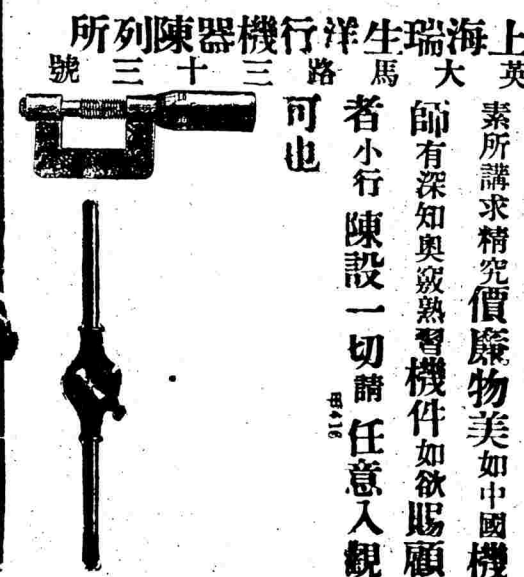 上海瑞生洋行機器陳列所
英大馬路三十三號
素所講求精究價廉物美如中國機
師有深知奧竅熟習機件如欲賜顧
者小行陳設一切請任意入觀
可也
甲416